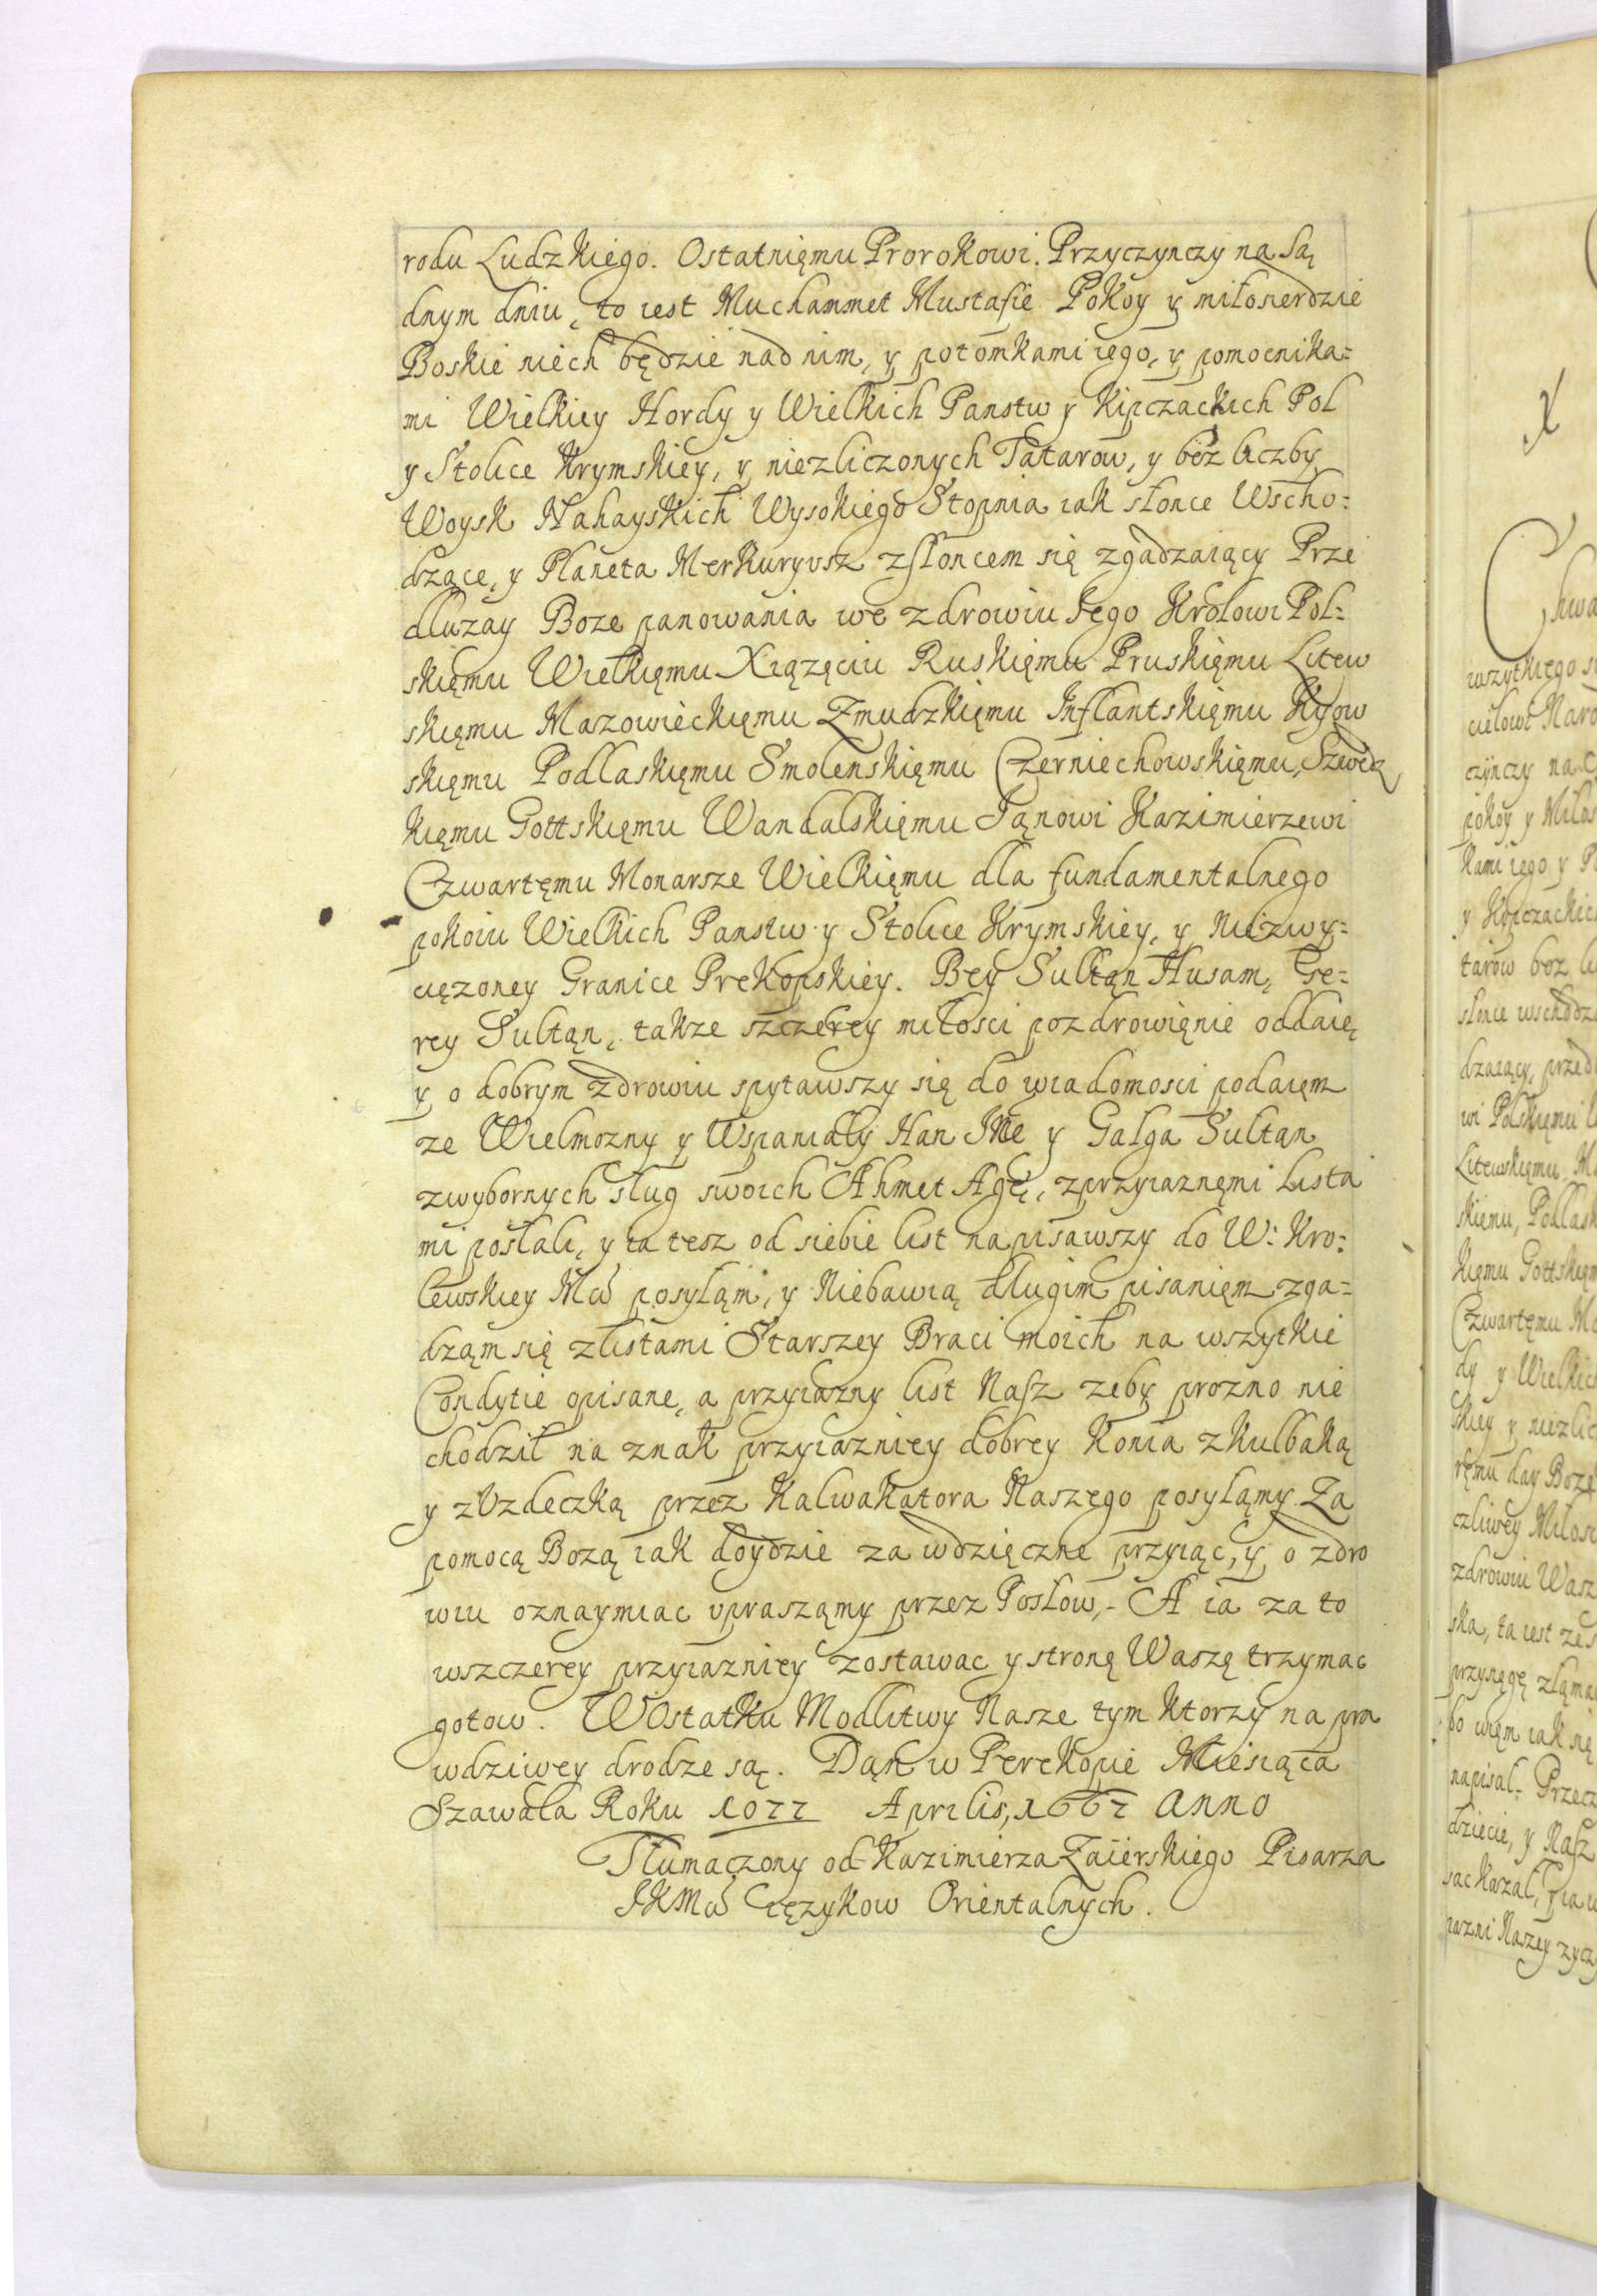 rodu Ludzkiego. Ostatnięmu Prorokowi. Przyczynczy na Są
dnym dniu, to iest Muchammet Mustafie Pokoy y miłosierdzie
Boskie niech będzie nad nim, y potomkami iego, y pomocnika=
mi Wielkiey Hordy y Wielkich Panstw y Kipczackich Pol
y Stolice Krymskiey, y niezliczonych Tatarow, y bez liczby
Woysk Nahayskich Wysokiego Stopnia iak słonce Wscho:
dzące, y Planeta Merkuryusz zsłoncem się zgadzaiący Prze
dłuzay Boze panowania we zdrowiu Jego Krolowi Pol=
skięmu Wielkięmu Xiązęciu Ruskięmu Pruskięmu Litew
skięmu Mazowieckięmu Zmudzkięmu Inflantskięmu Kyjow
skięmu Podlaskięmu Smolenskięmu Czerniechowskięmu, Szwedz
kięmu Gottskięmu Wandalskięmu Janowi Kazimierzewi
Czwartęmu Monarsze Wielkięmu dla fundamentalnego
pokoiu Wielkich Panstw y Stolice Krymskiey, y Niezwy=
cięzoney Granice Prekopskiey. Bey Sułtąn Husam, Ge=
rey Sultąn, takze szczerey miłosci pozdrowięnie oddaię
y o dobrym zdrowiu spytawszy się do wiadomosci podaięm
ze Wielmozny y Wspaniały Han JMe y Gałga Sultan
zwybornych sług swoich Ahmet Agę, zprzyiaznęmi Lista
mi posłali, y ia tesz od siebie list napisawszy do W: Kro:
lewskiey Mci posyłąm, y Niebawią długim pisanięm zga=
dząm się zlistami Starszey Braci moich na wszytkie
Condytie opisane, a przyiazny list Nasz zeby prozno nie
chodził na znak przyiazniey dobrey Konia zkulbaką
y zUzdeczką przez Kalwakatora Naszego posyłąmy Za
pomocą Bozą iak doydzie za wdzięczne przyiąc, y o zdro
wiu oznaymiac uprasząmy przez Posłow,- A ia za to
wszczerey przyiazniey zostawac y stronę Waszą trzymac
gotow. WOstatku Modlitwy Nasze tym ktorzy na pra
wdziwey drodze są. Dąn w Perekopie Miesiąca
Szawała Roku 1077 Aprilis, 1667 Anno
Tłumaczony od Kazimierza Zaierskiego Pisarza
JKMci ięzykow Orientalnych.